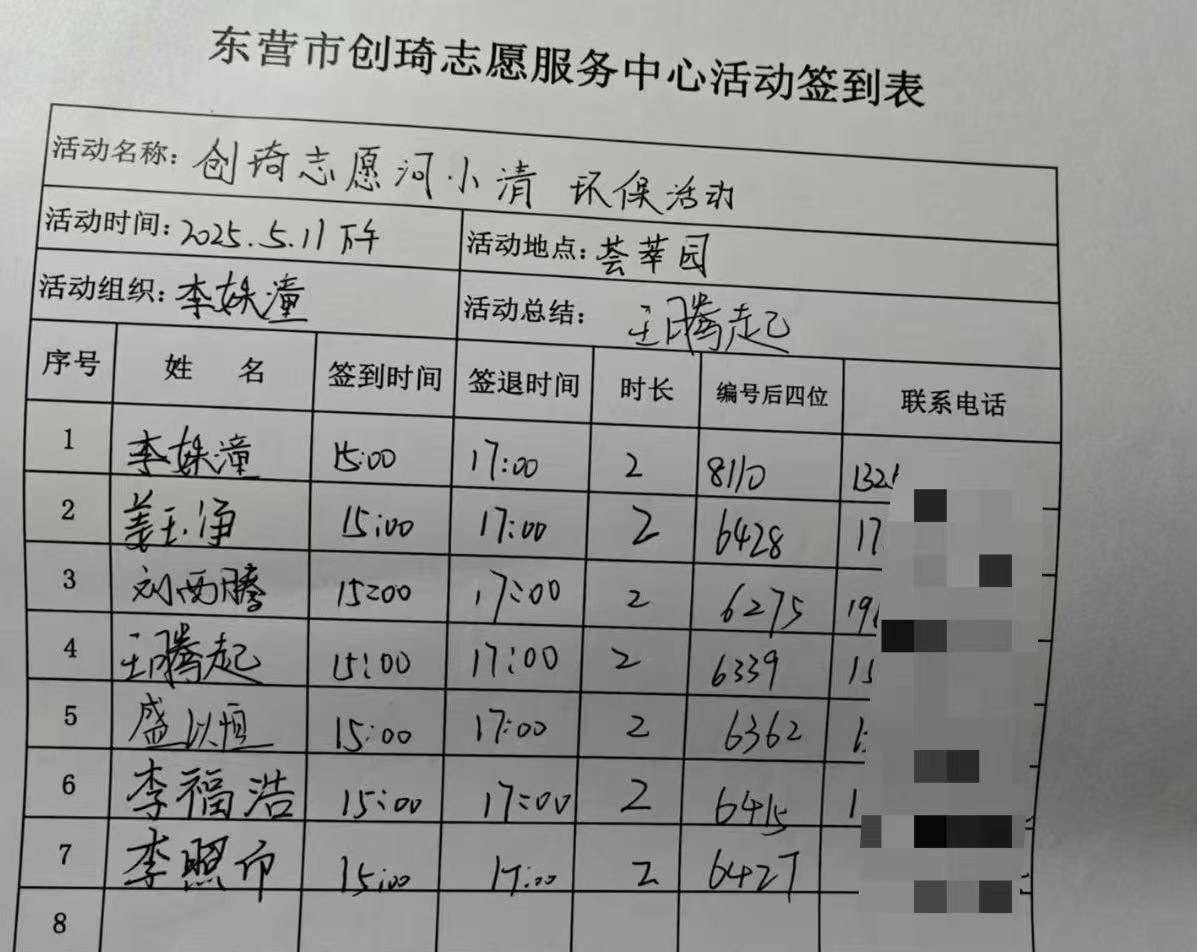 东营市创琦志愿服务中心活动签到表
活动名称：创琦志愿河小清 环保活动
活动时间：2025.5.11 下午 活动地点：荟萃园
活动组织：李姝潼 活动总结： 王腾起
序号 姓 名 签到时间 签退时间 时长 编号后四位 联系电话
1 李姝潼 15:00 17:00 2 8110 132
2 姜玉净 15:00 17:00 2 6428 17
3 刘西腾 15:00 17:00 2 6275 19
4 王腾起 15:00 17:00 2 6339 15
5 盛以恒 15:00 17:00 2 6362 1
6 李福浩 15:00 17:00 2 6415 1
7 李照印 15:00 17:00 2 6427
8